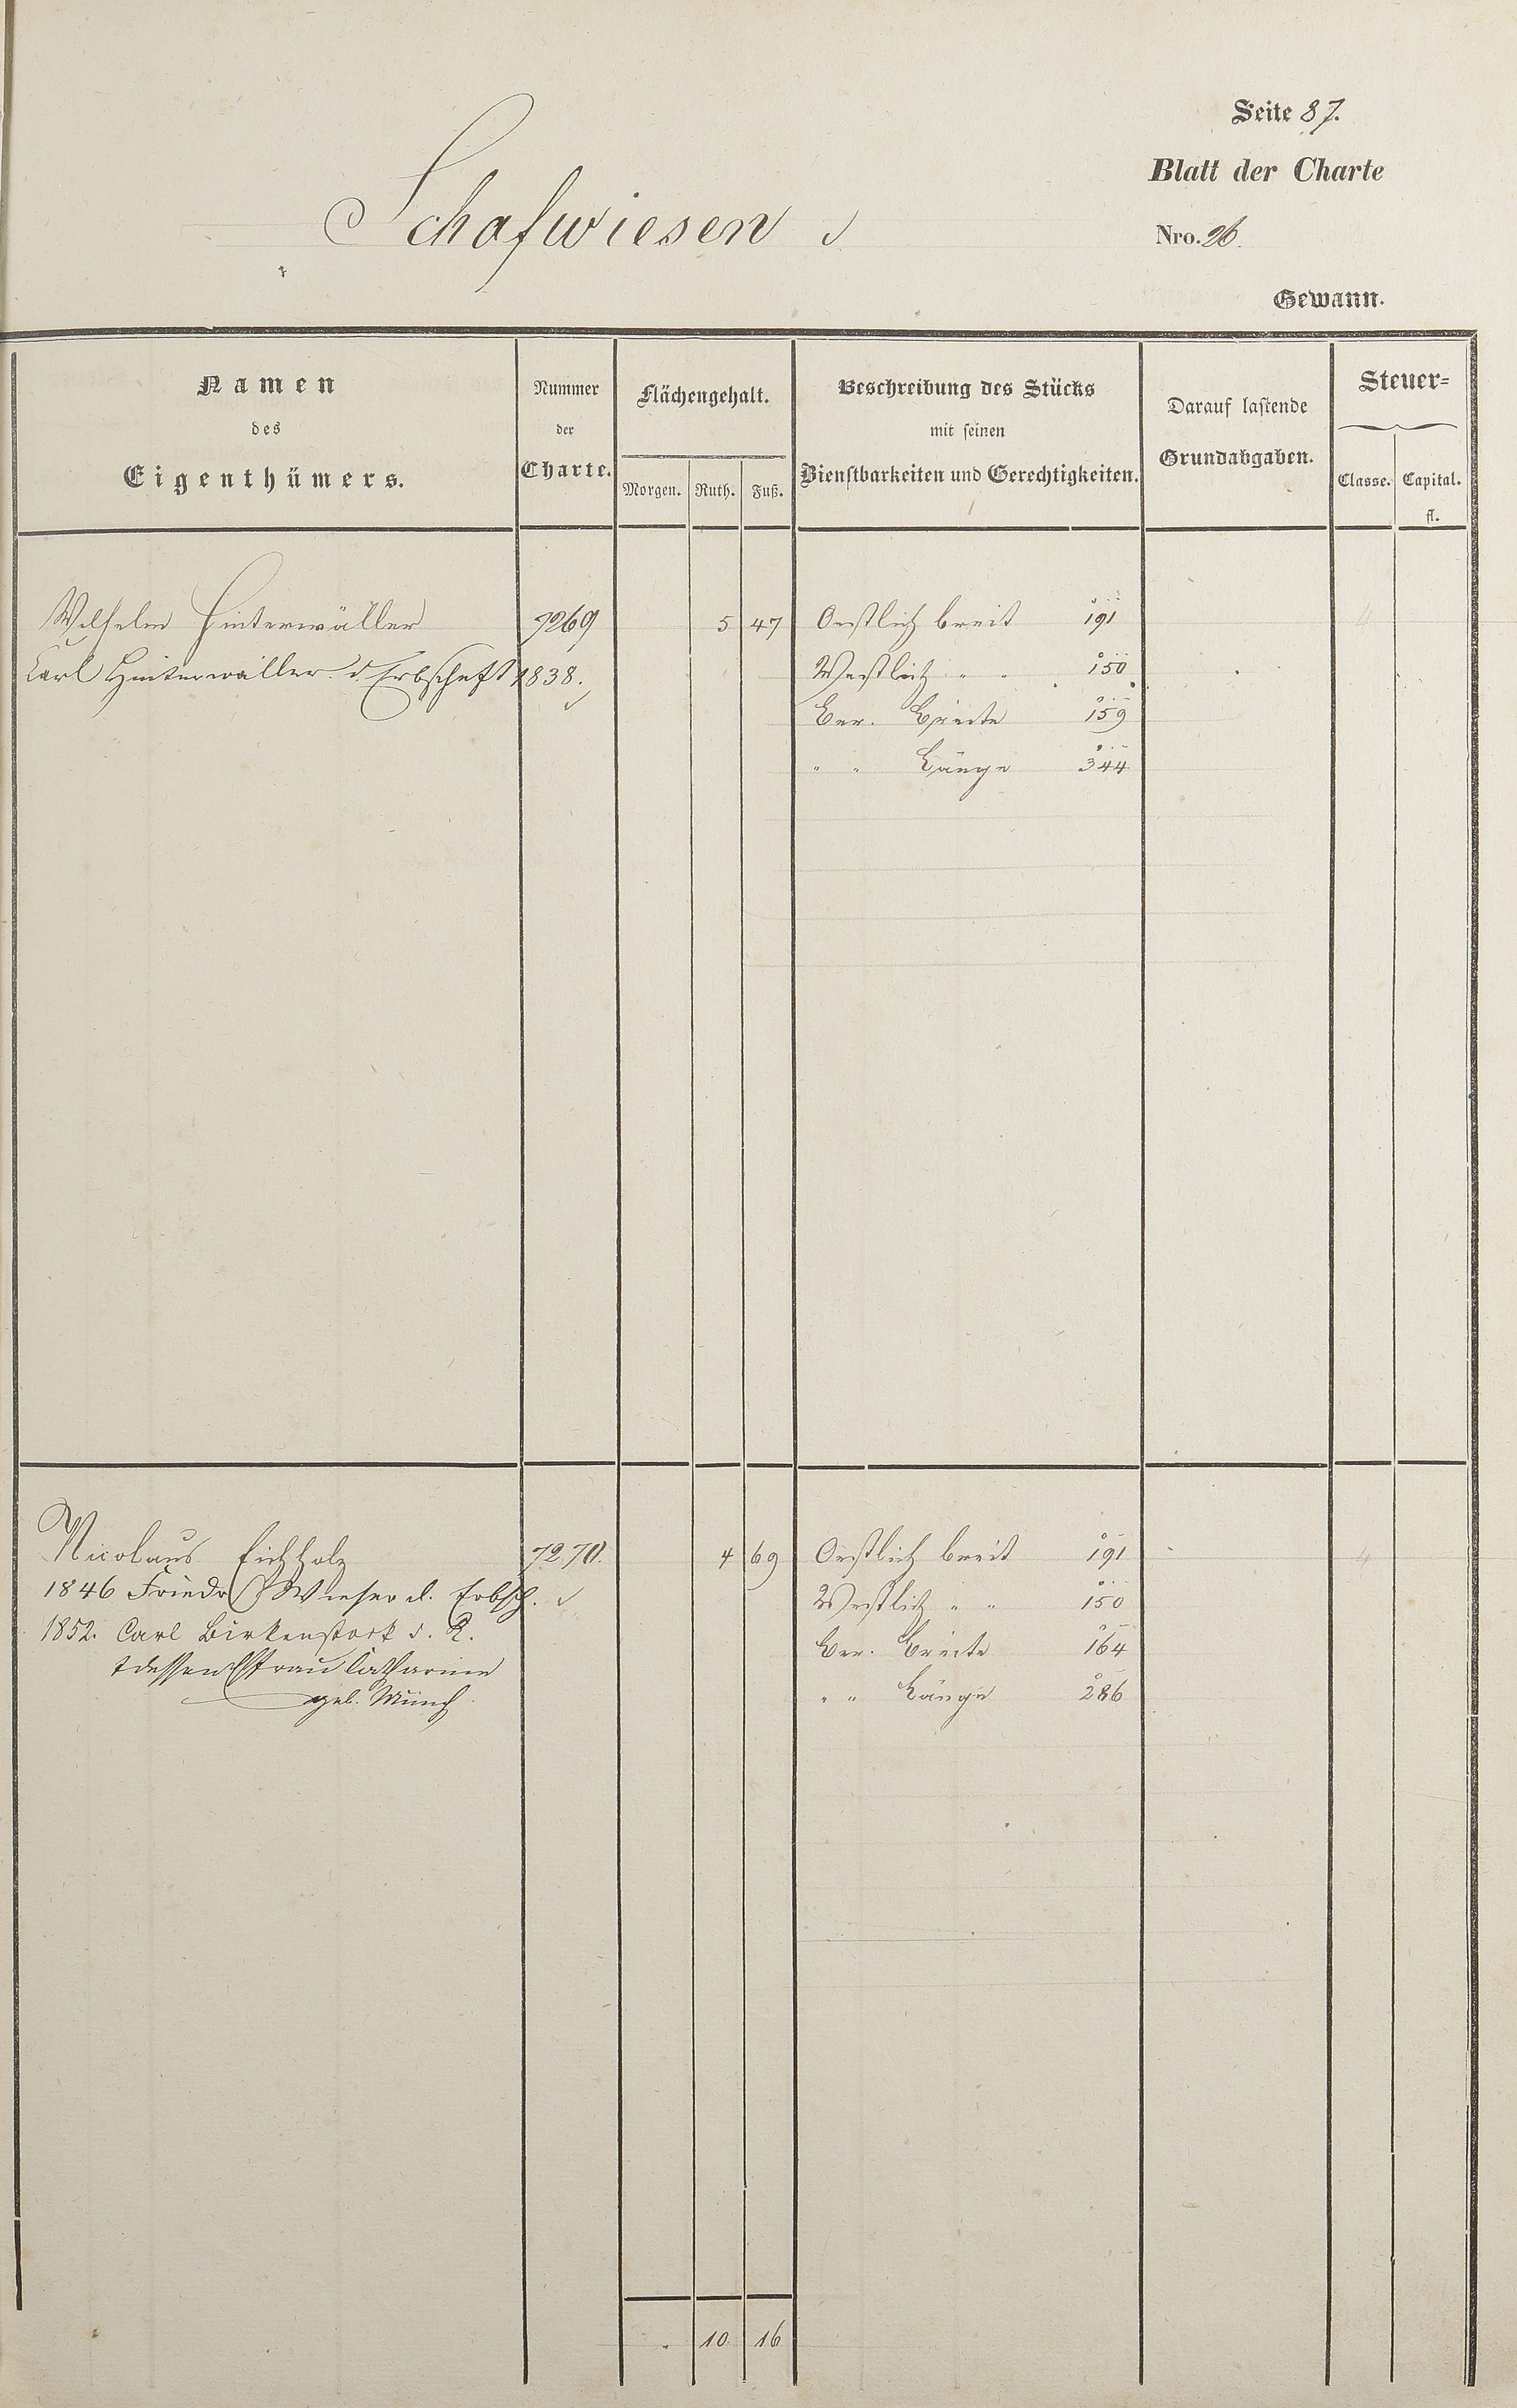 Seite 87.
Blatt der Charte
Schafwiesen
Nro. 26
Gewann.
Namen
des
Eigenthümers.
Nummer
der
Charte.
Flächengehalt.
Morgen. Ruth. Fuß.
Beschreibung des Stücks
mit seinen
Dienstbarkeiten und Gerechtigkeiten.
Darauf lastende
Grundabgaben.
Steuer=
Classe. Capital.
fl.
Wilhelm Hinterwäller 7269 5 47 Oestlich breit 191 4
Carl Hinterwäller d. Erbschaft 1838. Westlich " " 150
Ber. Breite 159
" " Länge 344
Nicolaus Eichholz 7270. 4 69 Oestlich breit 191 4
1846 Friedr. Wieser d. Erbsch. Westlich " " 150
1852. Carl Birkenstock d. K. Ber. Breite 164
+ dessen Ehfrau Catharine
geb. Münch " " Länge 286
10 16